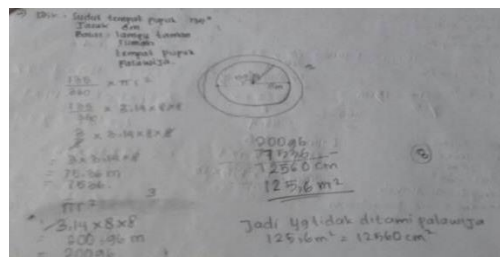 Dik : Sudut tempat pupuk 135°
Jarak 8m
lampu taman
rumah
tempat pupuk
palawija.
135/360 × πr²
135/360 × 3.14×8×8
3/8 × 3.14×8×8
= 3×3.14×8
= 75.36 m
= 7536
πr²
3.14×8×8
= 200.96 m
= 20096
20096
7536 -
12560 cm
125,6 m²
8
Jadi yg tidak ditami palawija
125,6m² = 12560 cm²